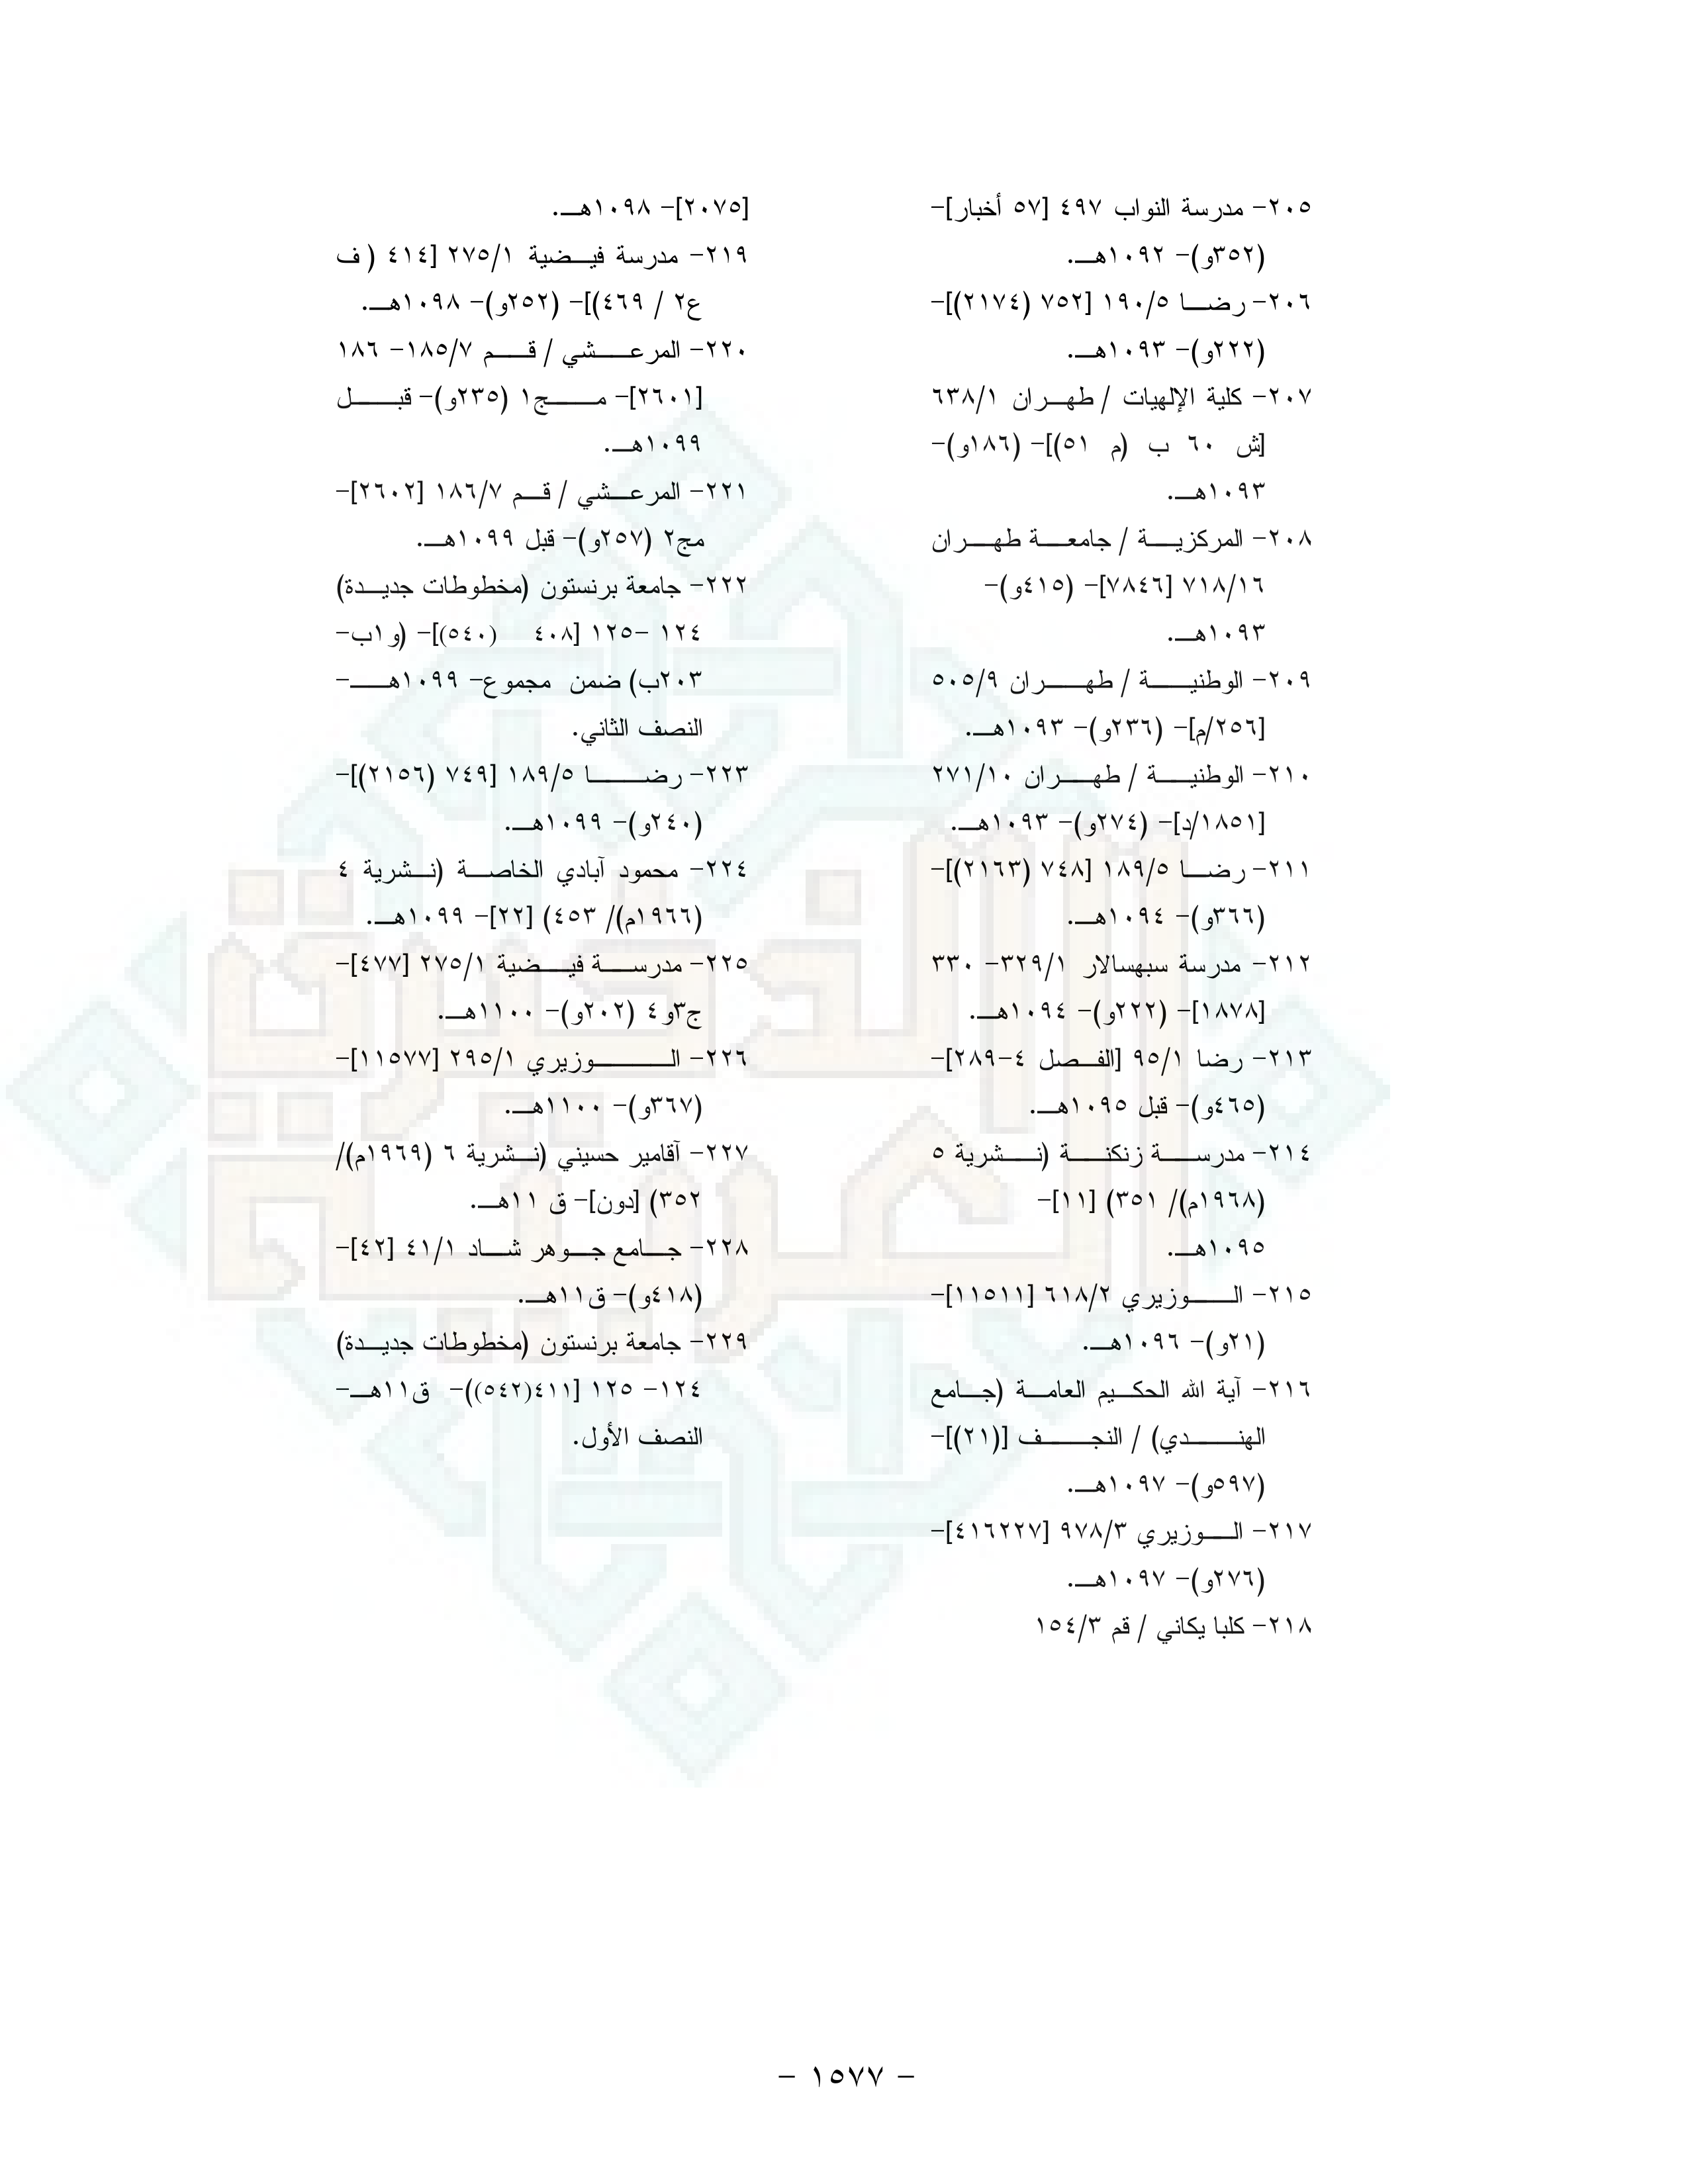 ٢٠٥- مدرسة النواب ٤٩٧ [٥٧ أخبار]-
(٣٥٢و)- ١٠٩٢هـ.
٢٠٦- رضا ١٩٠/٥ [٧٥٢ (٢١٧٤)]-
(٢٢٢و)- ١٠٩٣هـ.
٢٠٧- كلية الإلهيات / طهران ٦٣٨/١
[ش ٦٠ ب (م ٥١)]- (١٨٦و)-
١٠٩٣هـ.
٢٠٨- المركزية / جامعة طهران
٧١٨/١٦ [٧٨٤٦]- (٤١٥و)-
١٠٩٣هـ.
٢٠٩- الوطنية / طهران ٥٠٥/٩
[٢٥٦/م]- (٢٣٦و)- ١٠٩٣هـ.
٢١٠- الوطنية / طهران ٢٧١/١٠
[١٨٥١/د]- (٢٧٤و)- ١٠٩٣هـ.
٢١١- رضا ١٨٩/٥ [٧٤٨ (٢١٦٣)]-
(٣٦٦و)- ١٠٩٤هـ.
٢١٢- مدرسة سبهسالار ٣٢٩/١- ٣٣٠
[١٨٧٨]- (٢٢٢و)- ١٠٩٤هـ.
٢١٣- رضا ٩٥/١ [الفصل ٤-٢٨٩]-
(٤٦٥و)- قبل ١٠٩٥هـ.
٢١٤- مدرسة زنكنة (نشرية ٥
(١٩٦٨م)/ ٣٥١) [١١]-
١٠٩٥هـ.
٢١٥- الوزيري ٦١٨/٢ [١١٥١١]-
(٢١و)- ١٠٩٦هـ.
٢١٦- آية الله الحكيم العامة (جامع
الهندي) / النجف [(٢١)]-
(٥٩٧و)- ١٠٩٧هـ.
٢١٧- الوزيري ٩٧٨/٣ [٤١٦٢٢٧]-
(٢٧٦و)- ١٠٩٧هـ.
٢١٨- كلبا يكاني / قم ١٥٤/٣
[٢٠٧٥]- ١٠٩٨هـ.
٢١٩- مدرسة فيضية ٢٧٥/١ [٤١٤ ( ف
ع٢ / ٤٦٩)]- (٢٥٢و)- ١٠٩٨هـ.
٢٢٠- المرعشي / قم ١٨٥/٧- ١٨٦
[٢٦٠١]- مج١ (٢٣٥و)- قبل
١٠٩٩هـ.
٢٢١- المرعشي / قم ١٨٦/٧ [٢٦٠٢]-
مج٢ (٢٥٧و)- قبل ١٠٩٩هـ.
٢٢٢- جامعة برنستون (مخطوطات جديدة)
١٢٤ -١٢٥ [٤٠٨ (٥٤٠)]- (و١ب-
٢٠٣ب) ضمن مجموع- ١٠٩٩هـ-
النصف الثاني.
٢٢٣- رضا ١٨٩/٥ [٧٤٩ (٢١٥٦)]-
(٢٤٠و)- ١٠٩٩هـ.
٢٢٤- محمود آبادي الخاصة (نشرية ٤
(١٩٦٦م)/ ٤٥٣) [٢٢]- ١٠٩٩هـ.
٢٢٥- مدرسة فيضية ٢٧٥/١ [٤٧٧]-
ج٣و٤ (٢٠٢و)- ١١٠٠هـ.
٢٢٦- الوزيري ٢٩٥/١ [١١٥٧٧]-
(٣٦٧و)- ١١٠٠هـ.
٢٢٧- آقامير حسيني (نشرية ٦ (١٩٦٩م)/
٣٥٢) [دون]- ق ١١هـ.
٢٢٨- جامع جوهر شاد ٤١/١ [٤٢]-
(٤١٨و)- ق١١هـ.
٢٢٩- جامعة برنستون (مخطوطات جديدة)
١٢٤- ١٢٥ [٤١١(٥٤٢))- ق١١هـ-
النصف الأول.
الذخيرة
العربية
- ١٥٧٧ -